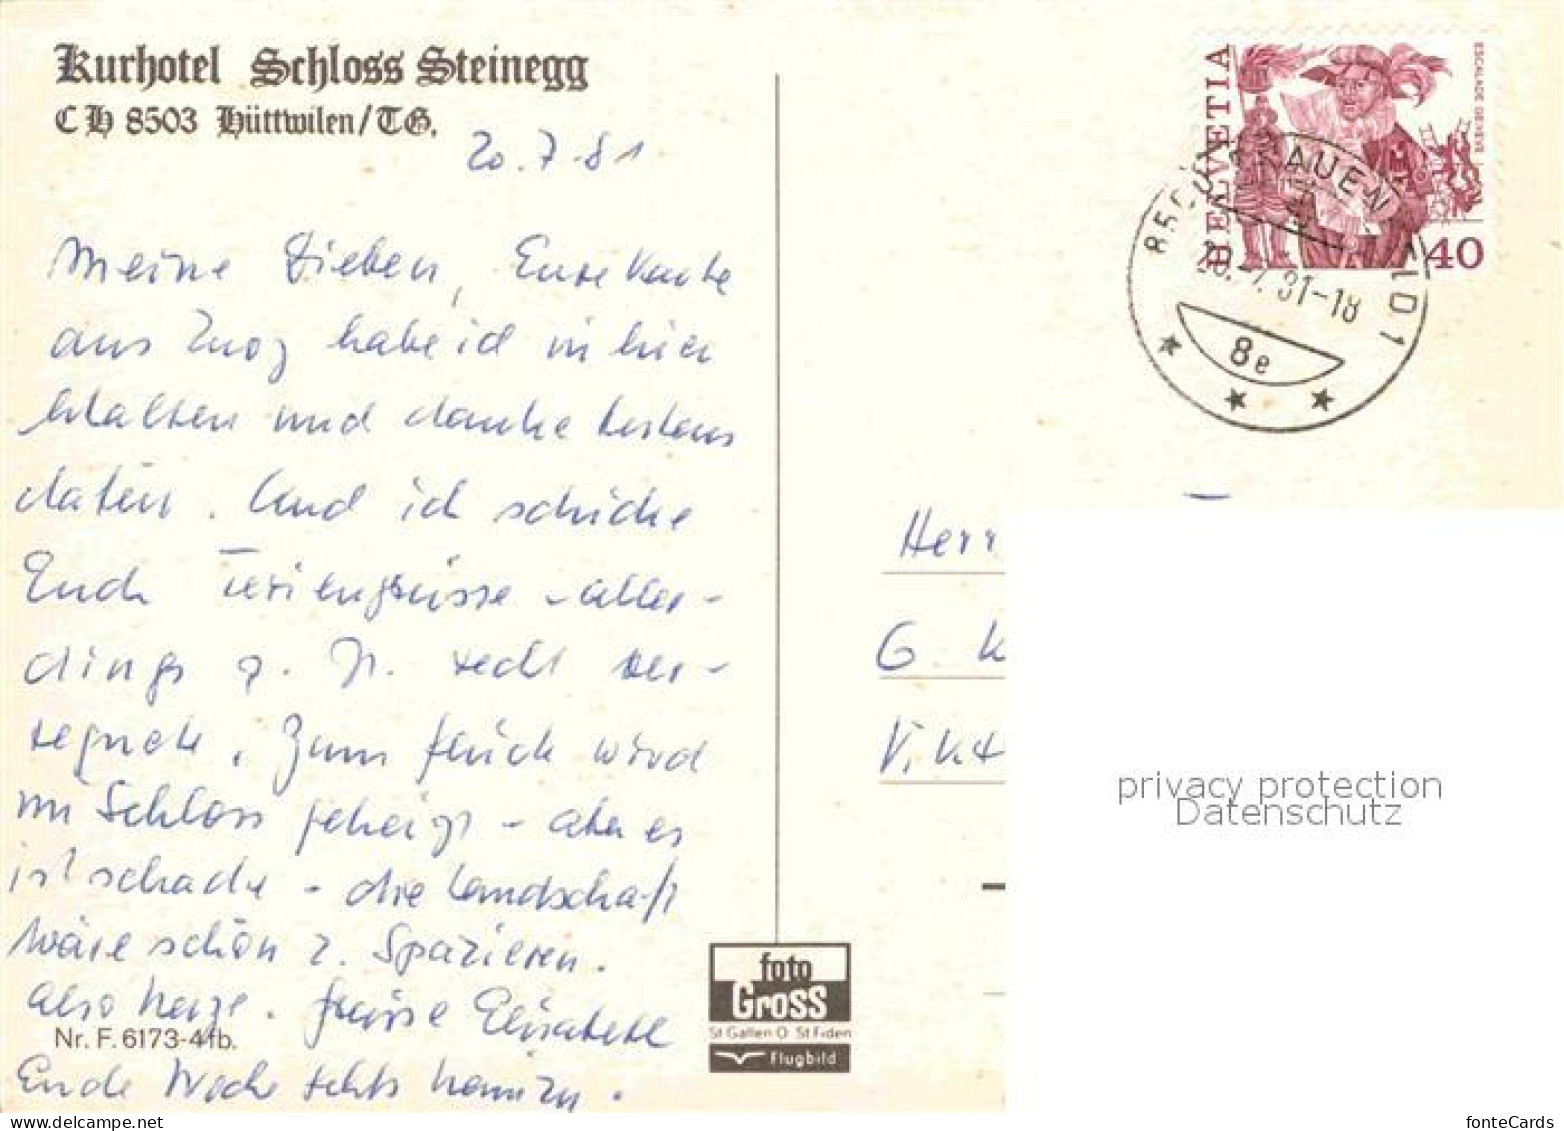 Kurhotel Schloss Steinegg
CH 8503 Hüttwilen/TG.
20.7.81
Meine Lieben, Eure Karte
aus Zuoz habe ich in hier
erhalten und danke bestens
dafür. Und ich schicke
Euch Feriengrüsse - aller-
dings z. Zt. recht ver-
regnete. Zum Glück wird
im Schloss geheizt - aber es
ist schade - die Landschaft
wäre schön z. Spazieren.
Also herzl. Grüsse Elisabeth
Ende Woche gehts
Nr. F. 6173-4fb.
foto
Gross
St Gallen O. St Fiden
Flugbild
HELVETIA
ESCALADE GENEVE
40
8500 FRAUENFELD 1
20.-7.81-18
8e
Herr
G. K
Vikt
privacy protection
Datenschutz
www.delcampe.net
fonteCards